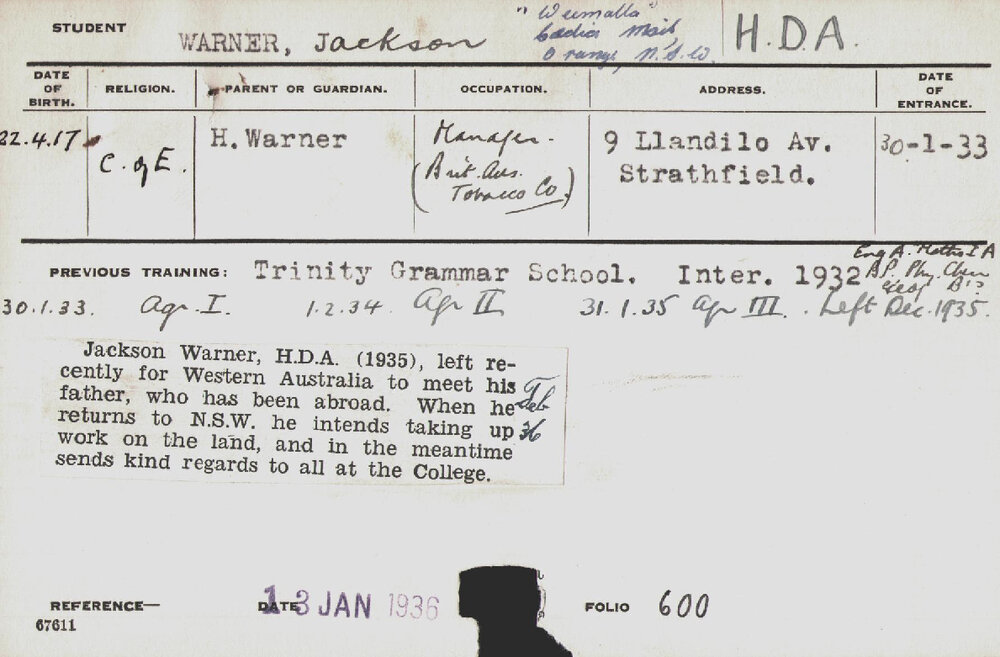 STUDENT
WARNER, Jackson
"Weemalla"
Cadia Mail
Orange, N.S.W.
H.D.A.
DATE OF BIRTH.
RELIGION.
PARENT OR GUARDIAN.
OCCUPATION.
ADDRESS.
DATE OF ENTRANCE.
22.4.17
C. of E.
H. Warner
Manager.
(Brit. Aus.
Tobacco Co.)
9 Llandilo Av.
Strathfield.
30-1-33
PREVIOUS TRAINING: Trinity Grammar School. Inter. 1932
Eng A. Maths I A
B.P. Phy. Chem
Geog B
30.1.33. Agr. I. 1.2.34. Agr II 31.1.35 Agr III. Left Dec. 1935.
Jackson Warner, H.D.A. (1935), left re-
cently for Western Australia to meet his
father, who has been abroad. When he
returns to N.S.W. he intends taking up
work on the land, and in the meantime
sends kind regards to all at the College.
Feb
36
REFERENCE—
67611
DATE
13 JAN 1936
FOLIO 600